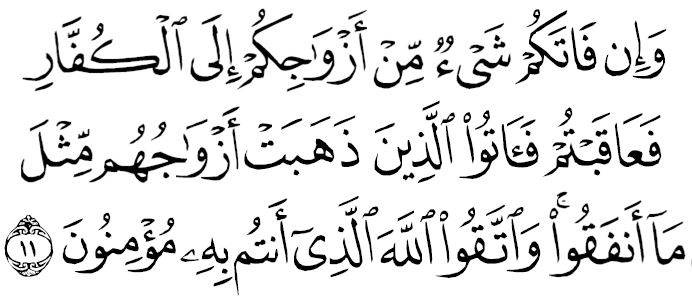 وَإِن فَاتَكُمْ شَىْءٌ مِّنْ أَزْوَٰجِكُمْ إِلَى ٱلْكُفَّارِ
فَعَاقَبْتُمْ فَـَٔاتُوا۟ ٱلَّذِينَ ذَهَبَتْ أَزْوَٰجُهُم مِّثْلَ
مَآ أَنفَقُوا۟ ۚ وَٱتَّقُوا۟ ٱللَّهَ ٱلَّذِىٓ أَنتُم بِهِۦ مُؤْمِنُونَ ١١